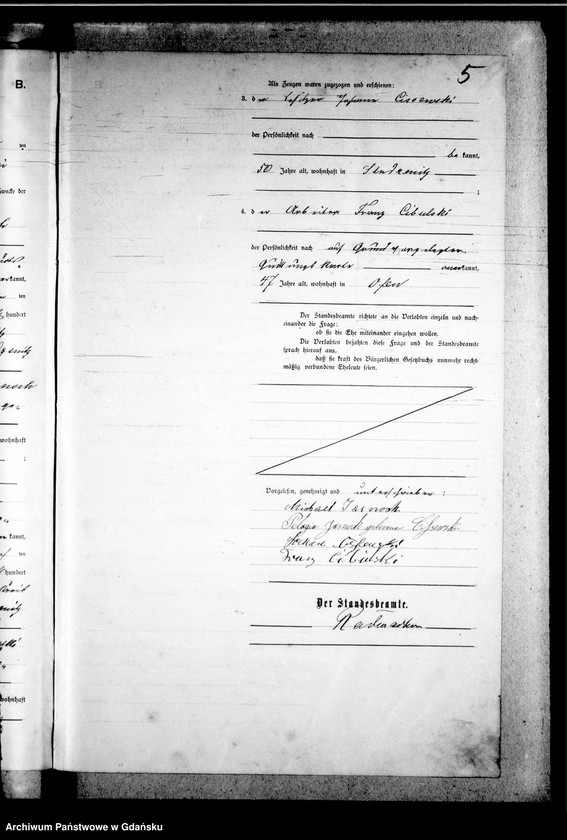 B.
5
Als Zeugen waren zugezogen und erschienen:
3. der Besitzer Johann Cissewski
der Persönlichkeit nach
be kannt,
50 Jahre alt, wohnhaft in
;
4. der Arbeiter Franz Cibulski
der Persönlichkeit nach auf Grund vorgelegter
Quittungskarte anerkannt,
47 Jahre alt, wohnhaft in Ofen
Der Standesbeamte richtete an die Verlobten einzeln und nach-
einander die Frage:
ob sie die Ehe miteinander eingehen wollen.
Die Verlobten bejahten diese Frage und der Standesbeamte
sprach hierauf aus,
daß sie kraft des Bürgerlichen Gesetzbuchs nunmehr recht-
mäßig verbundene Eheleute seien.
Vorgelesen, genehmigt und unterschrieben:
Michael Jasnoch
Pelagia Jasnoch geborene
Johann
Franz Cibulski
Der Standesbeamte.
ten
hundert
wohnhaft
;
kannt,
ten
hundert
wohnhaft
Archiwum Państwowe w Gdańsku